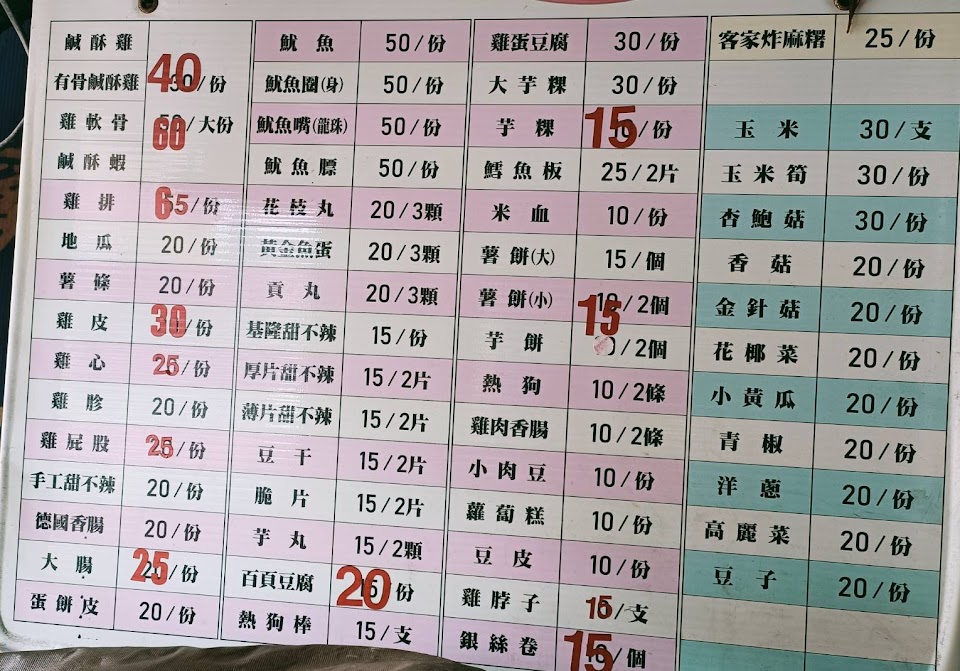 鹹酥雞
有骨鹹酥雞 40/份
雞軟骨 60/大份
鹹酥蝦
雞排 65/份
地瓜 20/份
薯條 20/份
雞皮 30/份
雞心 25/份
雞胗 20/份
雞屁股 25/份
手工甜不辣 20/份
德國香腸 20/份
大腸 25/份
蛋餅皮 20/份
魷魚 50/份
魷魚圈(身) 50/份
魷魚嘴(龍珠) 50/份
魷魚膘 50/份
花枝丸 20/3顆
黃金魚蛋 20/3顆
貢丸 20/3顆
基隆甜不辣 15/份
厚片甜不辣 15/2片
薄片甜不辣 15/2片
豆干 15/2片
脆片 15/2片
芋丸 15/2顆
百頁豆腐 20份
熱狗棒 15/支
雞蛋豆腐 30/份
大芋粿 30/份
芋粿 15/份
鱈魚板 25/2片
米血 10/份
薯餅(大) 15/個
薯餅(小) 15/2個
芋餅 /2個
熱狗 10/2條
雞肉香腸 10/2條
小肉豆 10/份
蘿蔔糕 10/份
豆皮 10/份
雞脖子 15/支
銀絲卷 15/個
客家炸麻糬 25/份
玉米 30/支
玉米筍 30/份
杏鮑菇 30/份
香菇 20/份
金針菇 20/份
花椰菜 20/份
小黃瓜 20/份
青椒 20/份
洋蔥 20/份
高麗菜 20/份
豆子 20/份